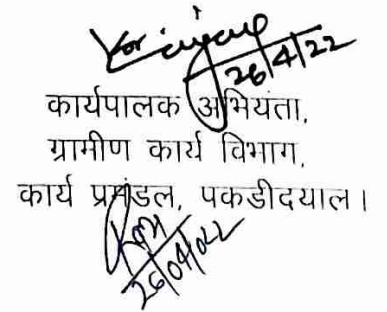 26/4/22
कार्यपालक अभियंता,
ग्रामीण कार्य विभाग,
कार्य प्रमंडल, पकडीदयाल।
26/04/022